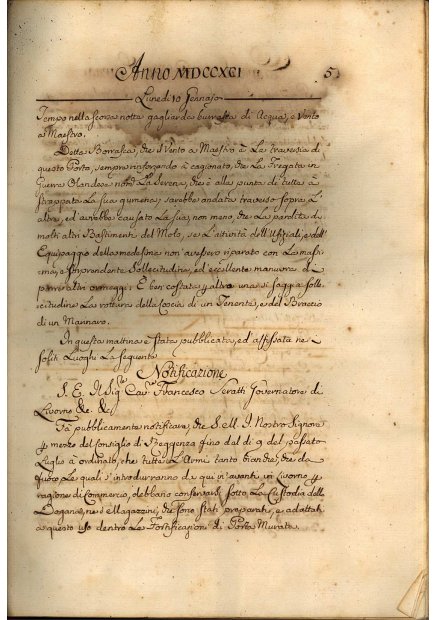 Anno MDCCXCI 5
Lunedì 10 Gennajo
Tempo nella scorsa notte gagliarda burrasca di Acqua, e Vento
a Maestro.
Detta Borrasca, che il Vento a Maestro è La traversia di
questo Porto, sempre rinforzando à cagionato, che La Fregata in
Guerra Olandese nom.ta La Serena, che è alla punta di tutte à
strappata La sua gumena; sarebbe andata traverso sopra L'
altre, ed avrebbe causato La sua, non meno, che La perdita di
molti altri Bastimenti del Molo, se L'attività dell'Uffizial., e dell'
Equipaggio della medesima non avessero riparato con La mass.
ma, e sorprendente Sollecitudine, ed eccellente manuvra di
preparar altri ormeggi: È ben costata peraltro una sì saggia solle
citudine La rottura della Coscia di un Tenente, e del Braccio
di un Marinaro.
In questa mattina è stata pubblicata, ed affissata ne
soliti Luoghi La seguente
Notificazione
S. E. Il Sig.re Cav.re Francesco Seratti Governatore di
Livorno &c. &c.
Fà pubblicamente notificare, che S. M. Il Nostro Signore
p mezzo del Consiglio di Reggenza fino dal dì 9 del passato
Luglio à ordinato, che tutte L'Armi tanto bianche, che da
fuoco Le quali s'introdurranno di qui in avanti in Livorno p
ragione di Commercio, debbano conservarsi sotto La Custodia della
Dogana, ne' Magazzini, che sono stati preparati, e adattati
a questo uso dentro La Fortificazione di Porta Murata.